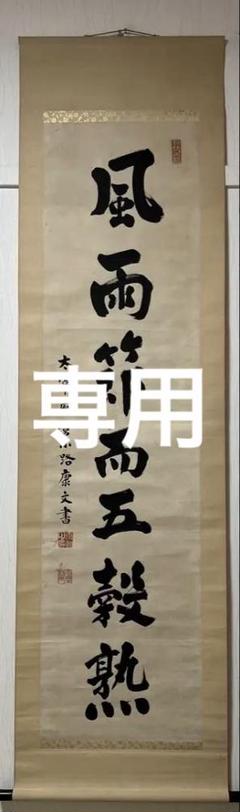 風雨節而五穀熟
路康文書
専用